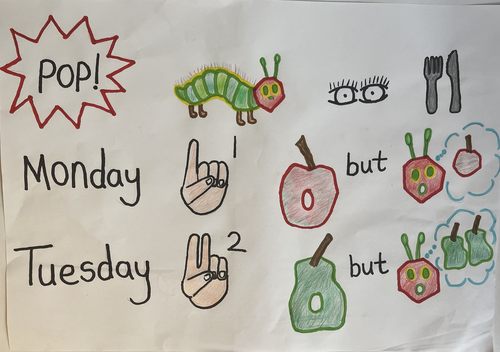 POP!
Monday 1 but
Tuesday 2 but